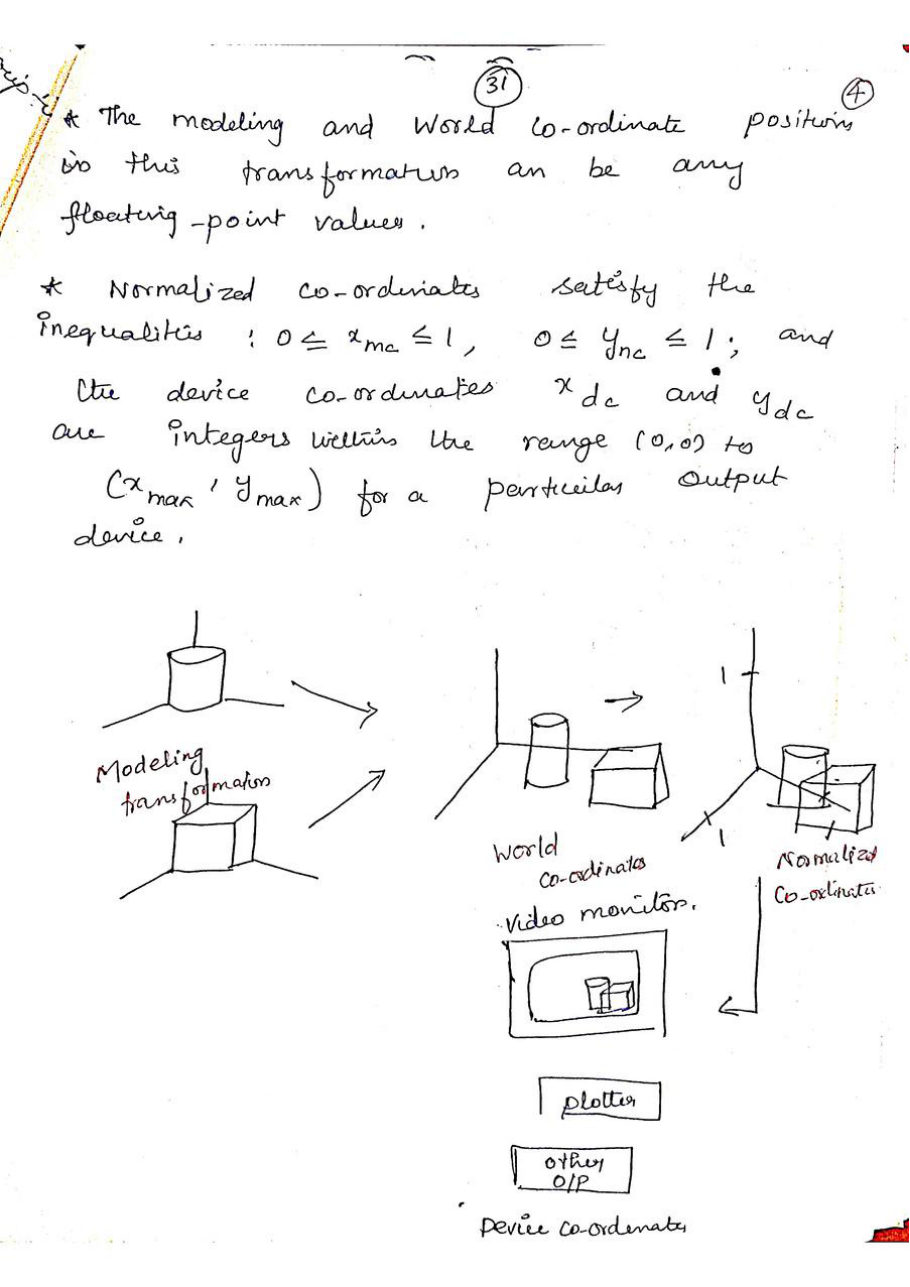 31
4
* The modeling and World Co-ordinate positions
in this transformation an be any
floating-point values.
* Normalized co-ordinates satisfy the
inequalities : 0 ≤ x mc ≤ 1, 0 ≤ y nc ≤ 1; and
the device co-ordinates x dc and y dc
are integers within the range (0,0) to
(x max, y max) for a particular output
device.
1
Modeling
transformation
1
World
Co-ordinates
Normalized
Co-ordinates
Video monitor.
plotter
other
O/P
Device co-ordinates